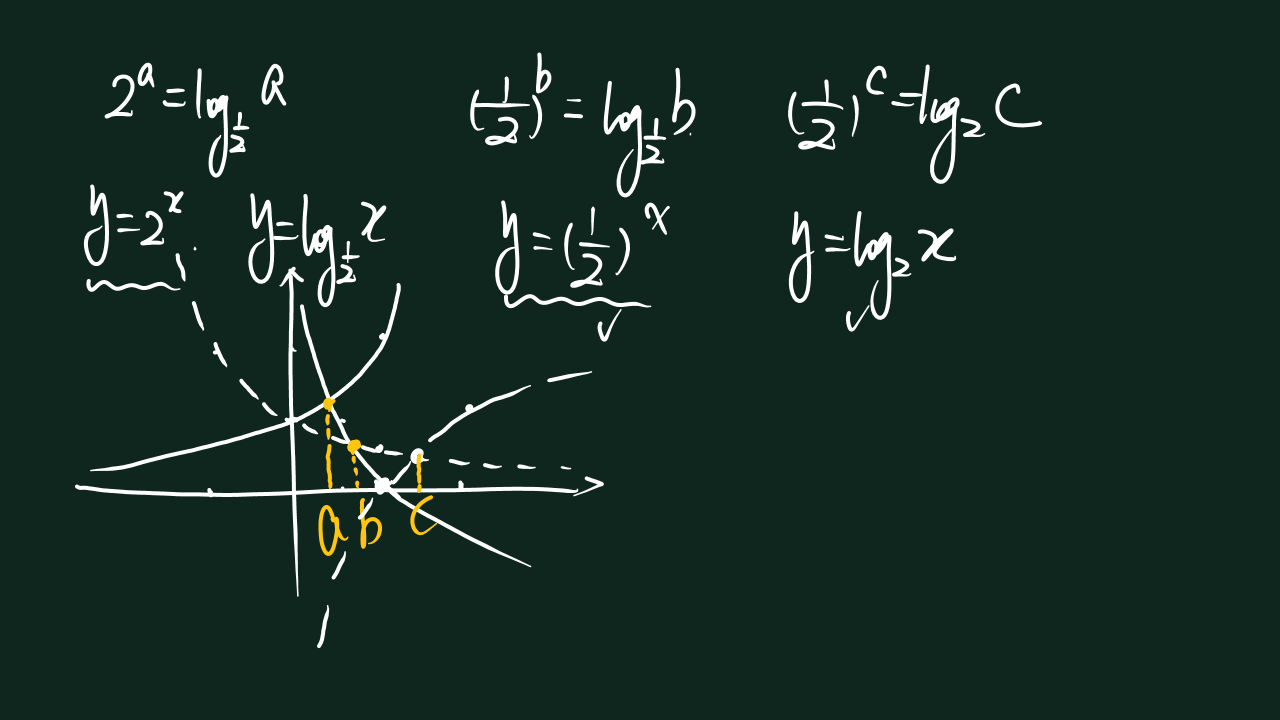 2^a = log_{1/2} a (1/2)^b = log_{1/2} b (1/2)^c = log_2 c
y = 2^x y = log_{1/2} x y = (1/2)^x y = log_2 x
a b c